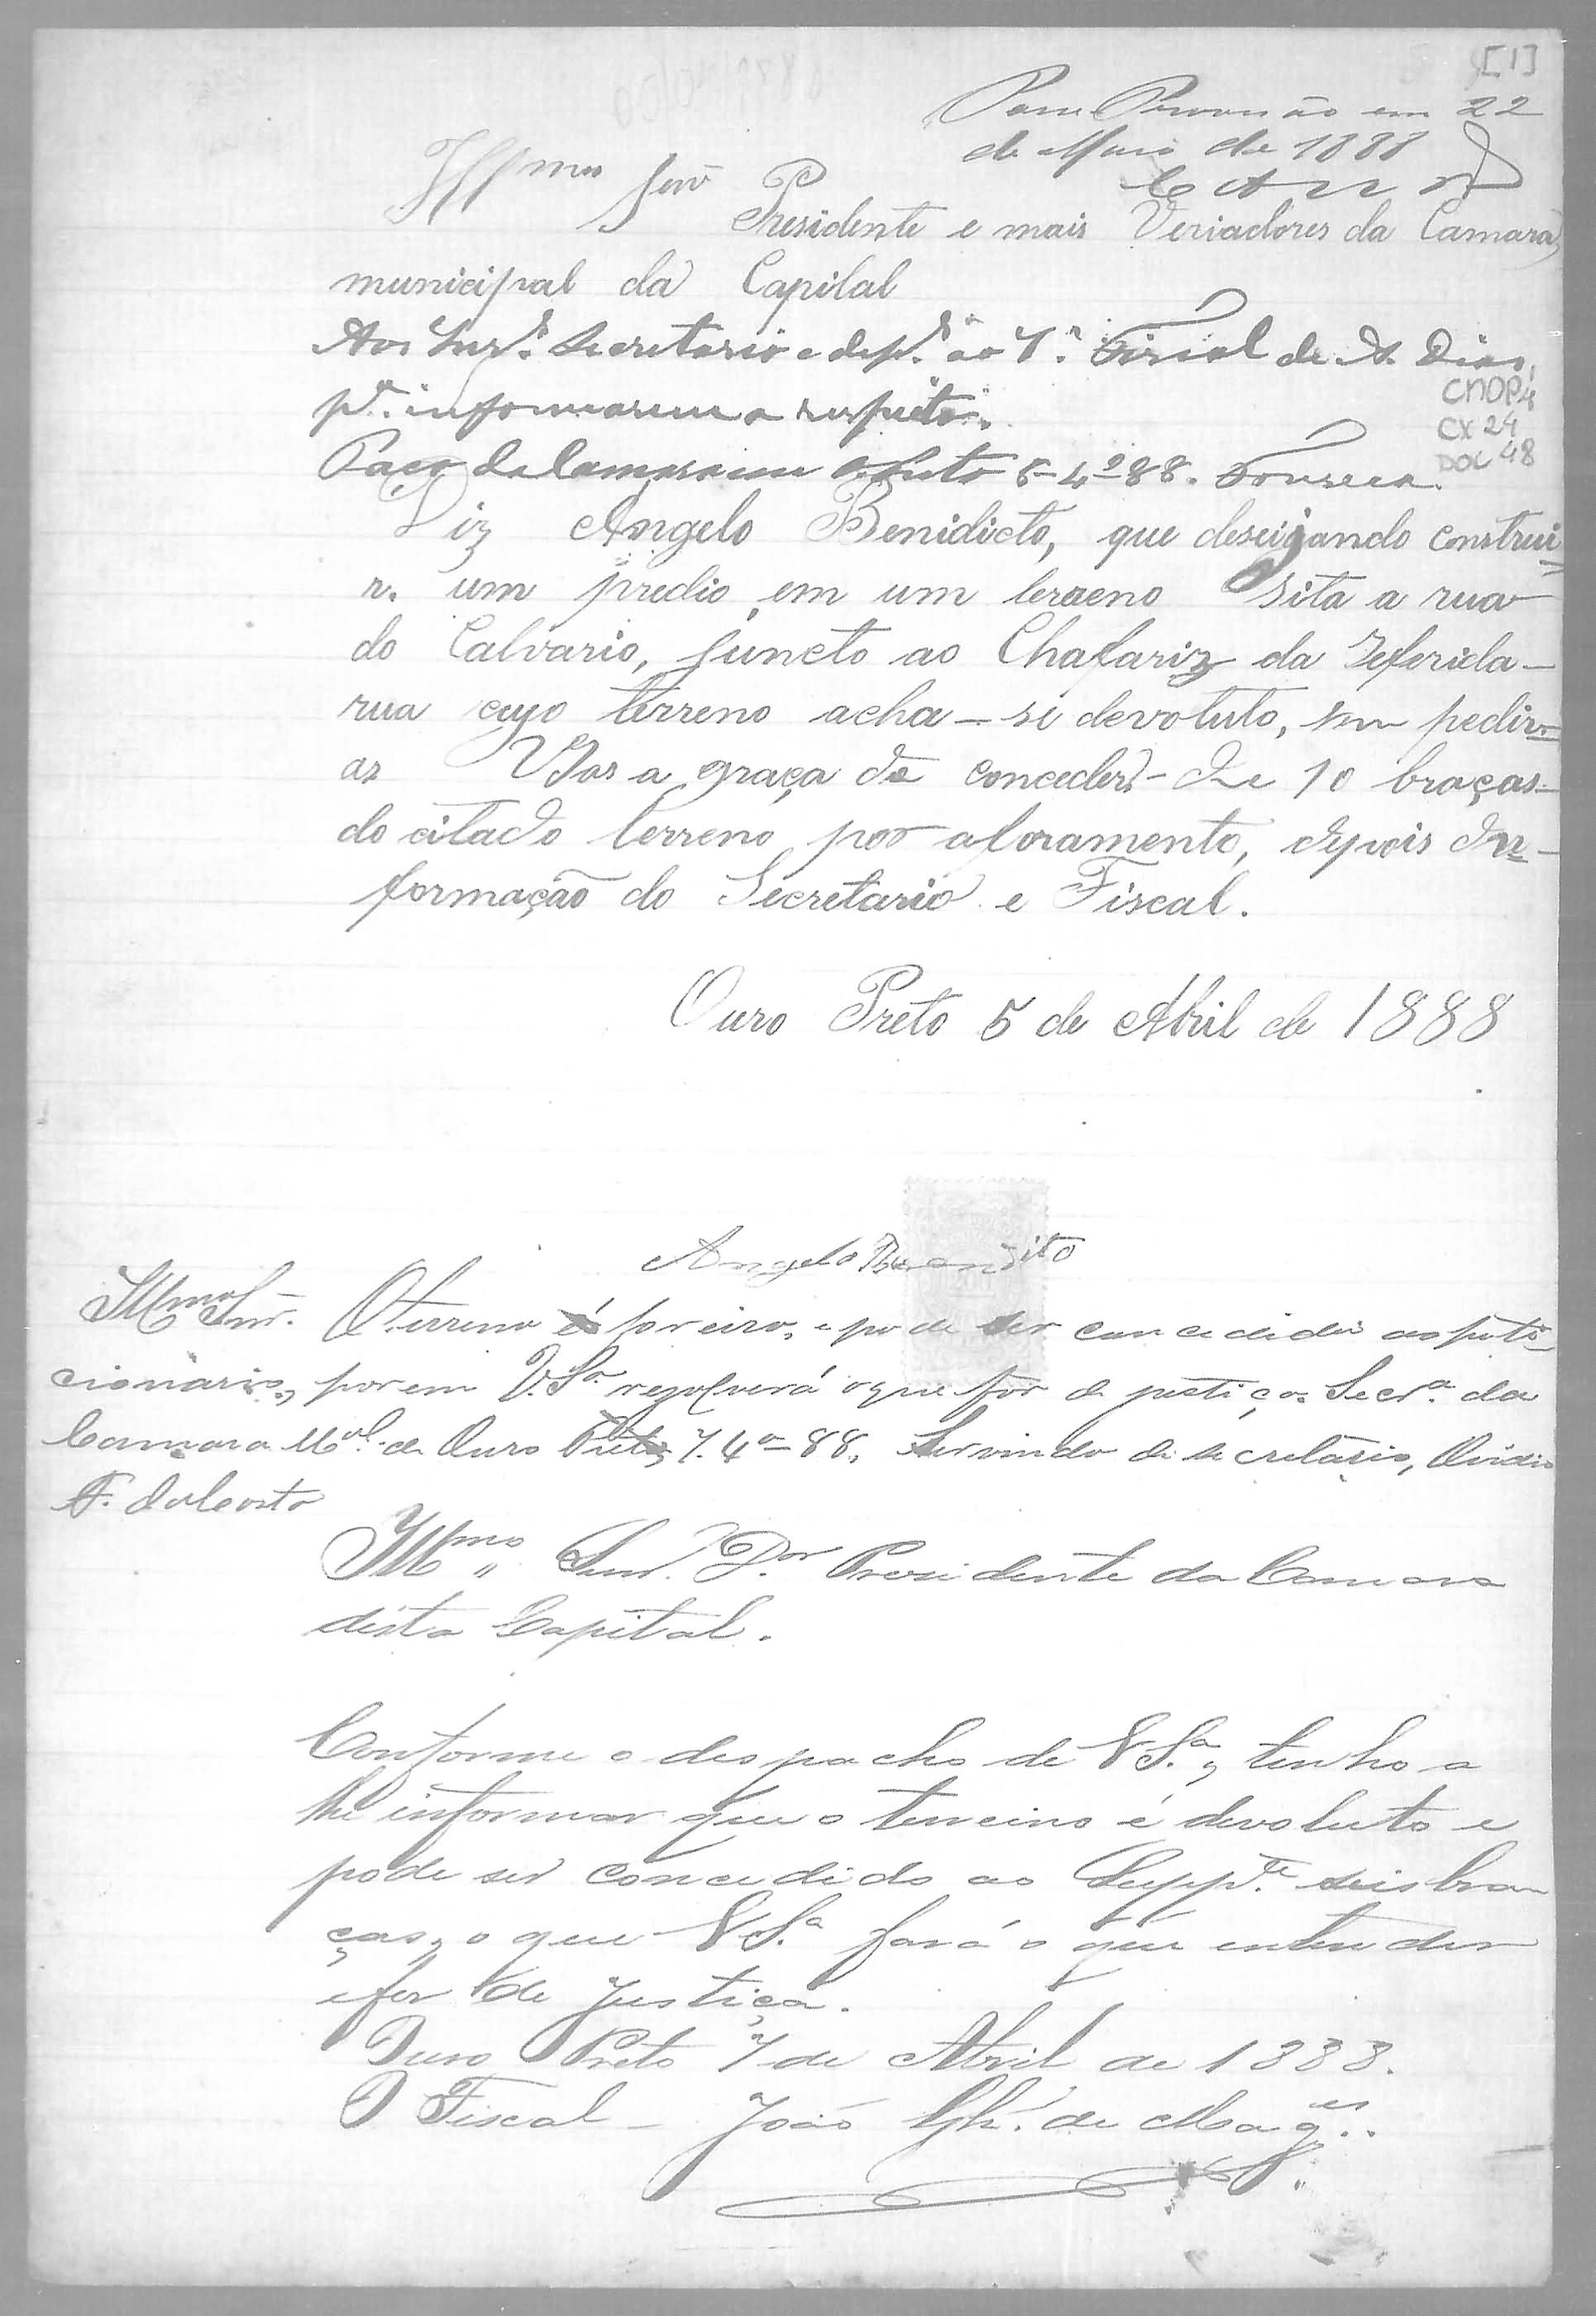 [1]
em 22
de Maio de 1888
Illmos Senr
Presidente e mais Veriadores da Camara
municipal da Capital
Aos Snrs. Secretario e dep.s ao 1º Fiscal de A. Dias,
pª informarem a respeito.
CMOP
CX 24
DOC 48
Paço da Camara em O. Preto 5-4º-88. Fonseca.
Diz Angelo Benidicto, que deseijando construi=
r. um predio em um terreno sita a rua
do Calvario, juncto ao Chafariz da referida-
rua cujo terreno acha-se devoluto, vem pedir=
as VSas a graça de conceder-lhe 10 braças-
do citado terreno por aforamento, depois In-
formação do Secretario e Fiscal.
Ouro Preto 5 de Abril de 1888
Angelo Benedito
Illmo Snr. O terreno é foreiro, e pode ser concedido ao peti-
cionario, porem V.Sa resolverá o que for de justiça. Secrª. da
Camara Mal. de Ouro Preto, 7. 4º-88. Servindo de secretário, Ovidio
F. da Costa
Illmo " Snr. Dor Presidente da Camara
desta Capital.
Conforme o despacho de VSª, tenho a
lhe informar que o terreino é devoluto e
pode ser concedido ao Supp.te seis bra-
ças, o que VSª fará o que entender
e for de justiça.
Ouro Preto 7 de Abril de 1888.
O Fiscal - João de Mages.